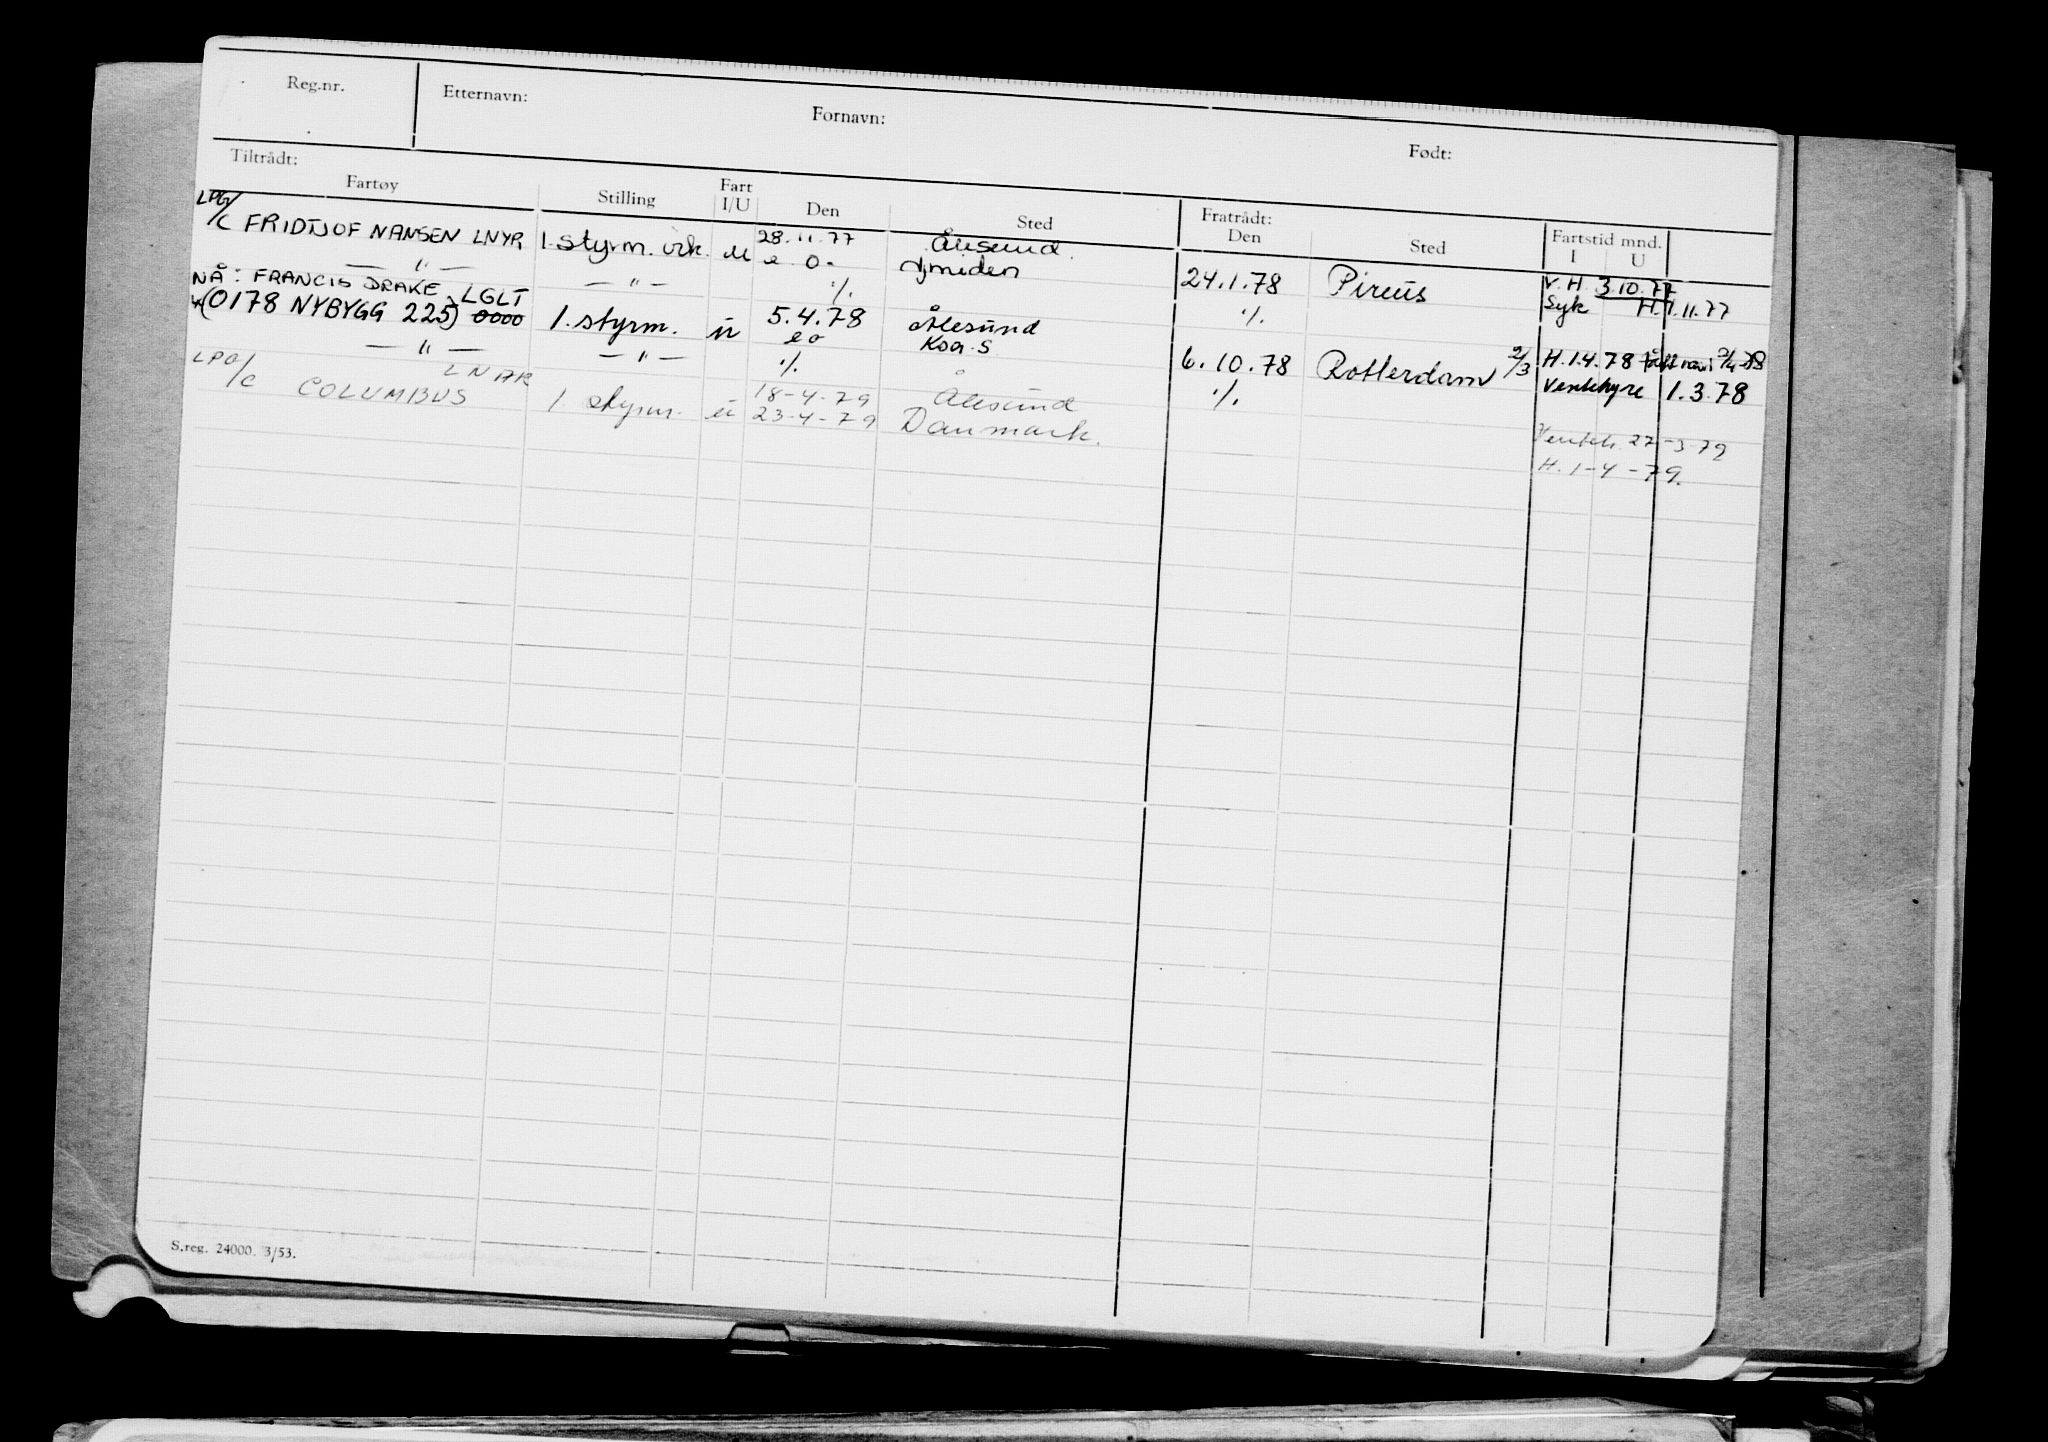 Reg.nr. Etternavn: Fornavn: Født:
Tiltrådt: Fratrådt:
Fartøy Stilling Fart I/U Den Sted Den Sted Fartstid mnd. I U
LPG/C FRIDTJOF NANSEN LNYR 1. styrm. vik. u 28.11.77 Ålesund V.H. 3.10.77
— " — — " — e.o. Ijmiden 24.1.78 Pireus Syk H. 1.11.77
NÅ: FRANCIS DRAKE LGLT ·/. ·/.
(0178 NYBYGG 225) 0000 1. styrm. u 5.4.78 Ålesund
— " — — " — e o Koa. S 6.10.78 Rotterdam 2/3 H. 1.4.78
LPG/C COLUMBUS LNAK ·/. ·/. Ventehyre 1.3.78
1. styrm. u 18-4-79 Ålesund
23-4-79 Danmark. Venteh. 27-3-79
H. 1-4-79.
S.reg. 24000. 3/53.